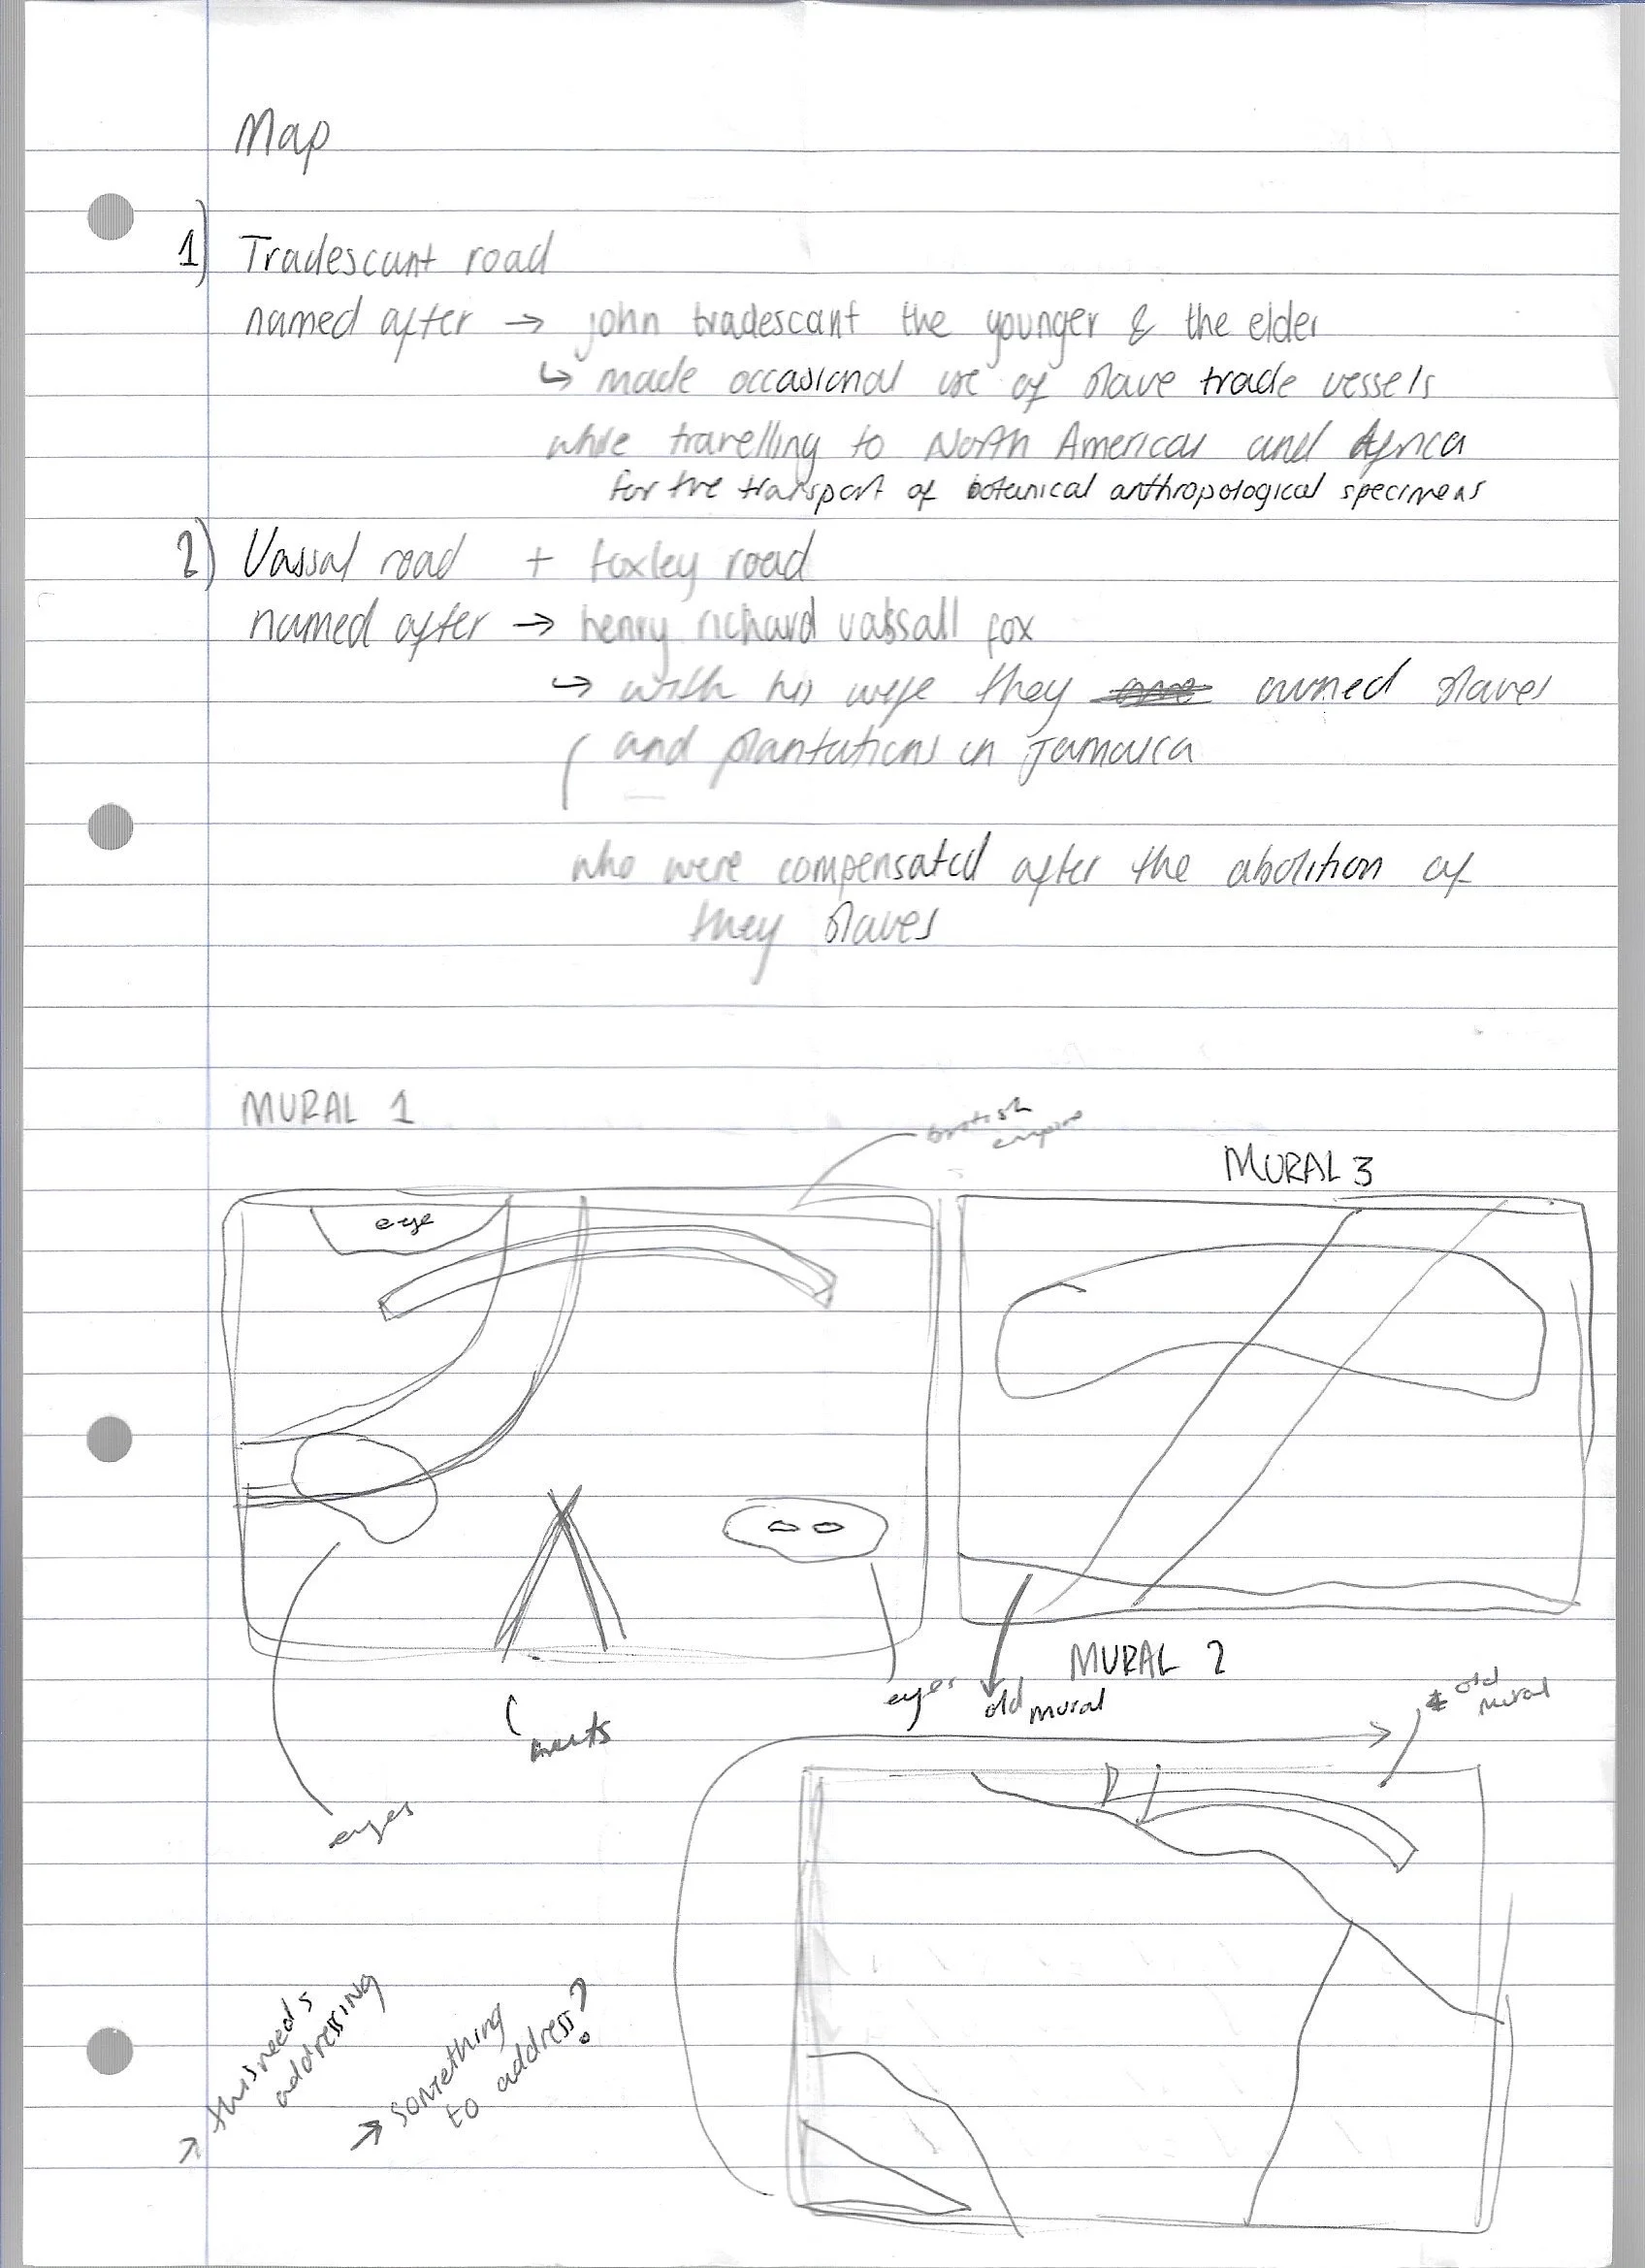 Map
1) Tradescant road
named after → john tradescant the younger & the elder
↳ made occasional use of slave trade vessels
while travelling to North Americas and Africa
for the transport of botanical anthropological specimens
2) Vassal road + foxley road
named after → henry richard vassall fox
↳ with his wife they owned slaves
and plantations in Jamaica
who were compensated after the abolition of
they slaves
MURAL 1
british
empire
MURAL 3
eye
eyes
eyes
old mural
MURAL 2
old
mural
→ this needs
addressing
→ something
to address?